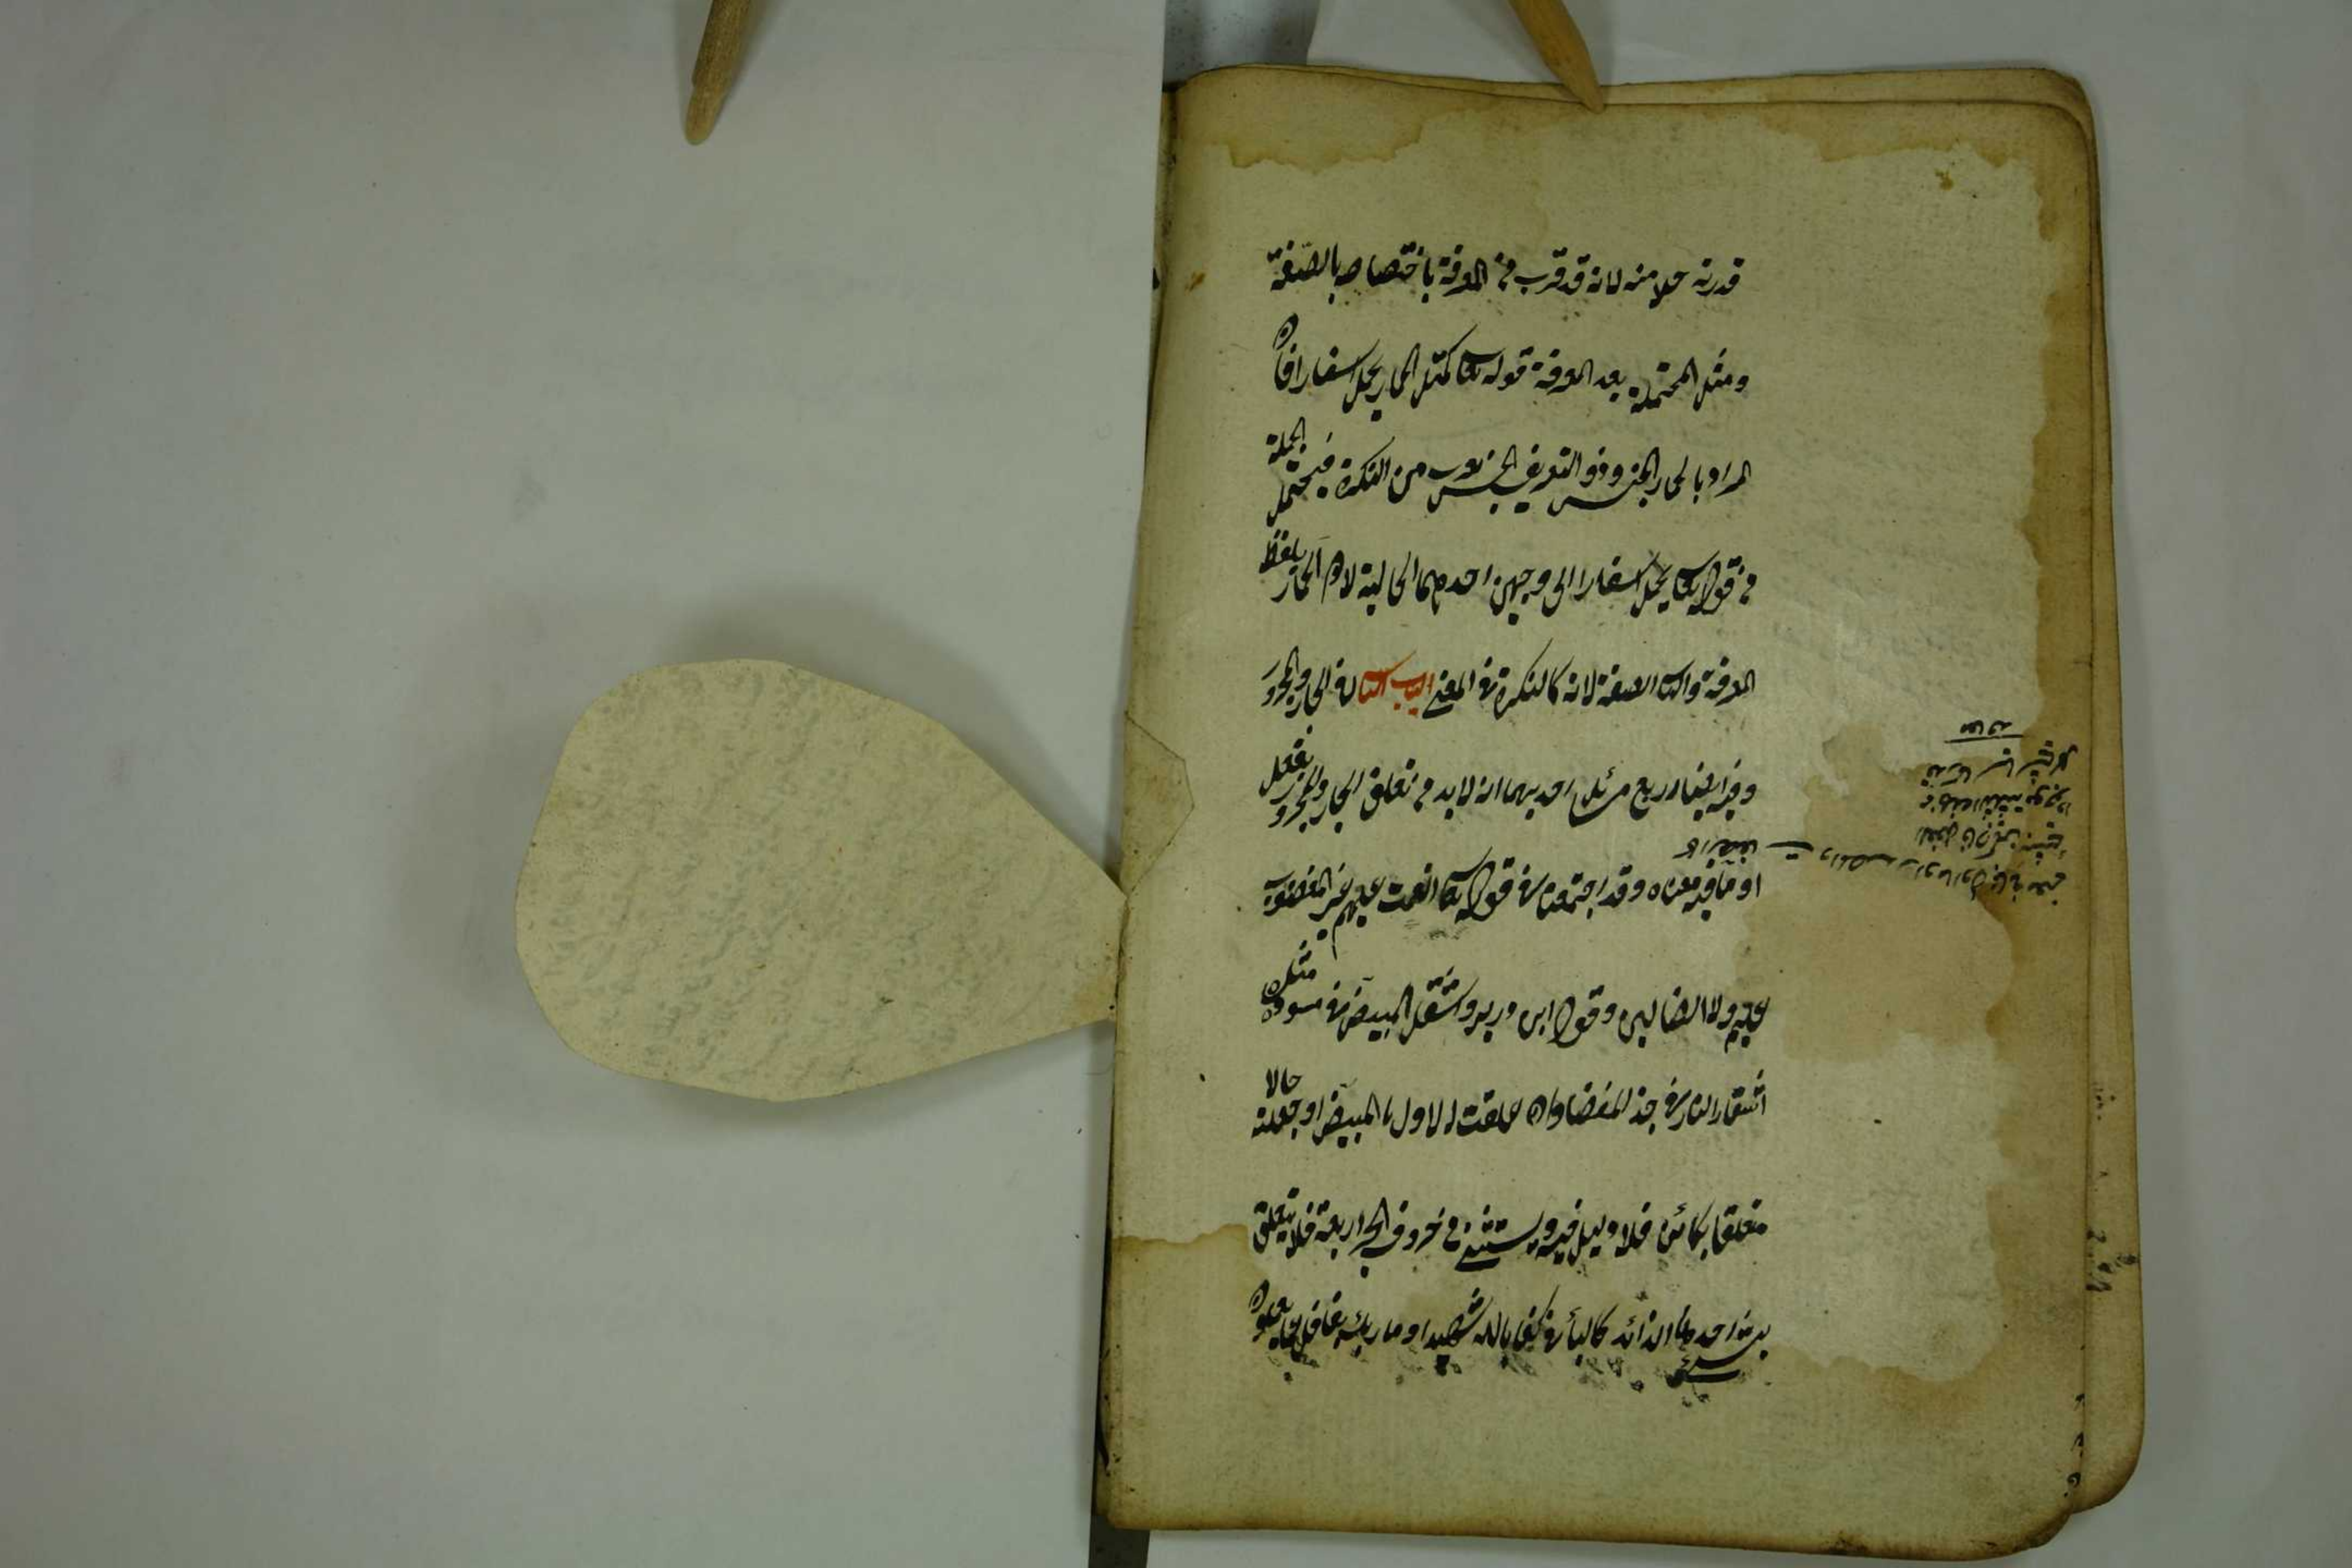 قدرته حالا منه لانه قد قرب من المعرفة باختصاصه بالصفة
ومثل المحتملة بعد المعرفة قوله تعالى كمثل الحمار يحمل اسفارا فان
المراد بالحمار الجنس وذو التعريف الجنسي يقرب من النكرة فيحتمل الجملة
من قوله تعالى يحمل اسفارا الى وجهين احدهما الحالية لان الحمار بلفظ
المعرفة والثانى الصفة لانه كالنكرة فى المعنى الباب الثانى فى الجار والمجرور
وفيه ايضا اربع مسائل احديهما انه لابد من تعلق الجار والمجرور بفعل
او ما فيه معناه وقد اجتمعتا فى قوله تعالى انعمت عليهم غير المغضوب
عليهم ولا الضالين وقول ابن دريد واشتعل المبيض فى مسوده مثل
اشتعال النار فى جذل الغضا وان علقت الاول بالمبيض او جعلته حالا
متعلقا بكائن فلا دليل فيه ويستثنى من حروف الجر اربعة فلا يتعلق
بشئ احدها الزائد كالباء فى كفى بالله شهيدا وما ربك بغافل عما يعملون